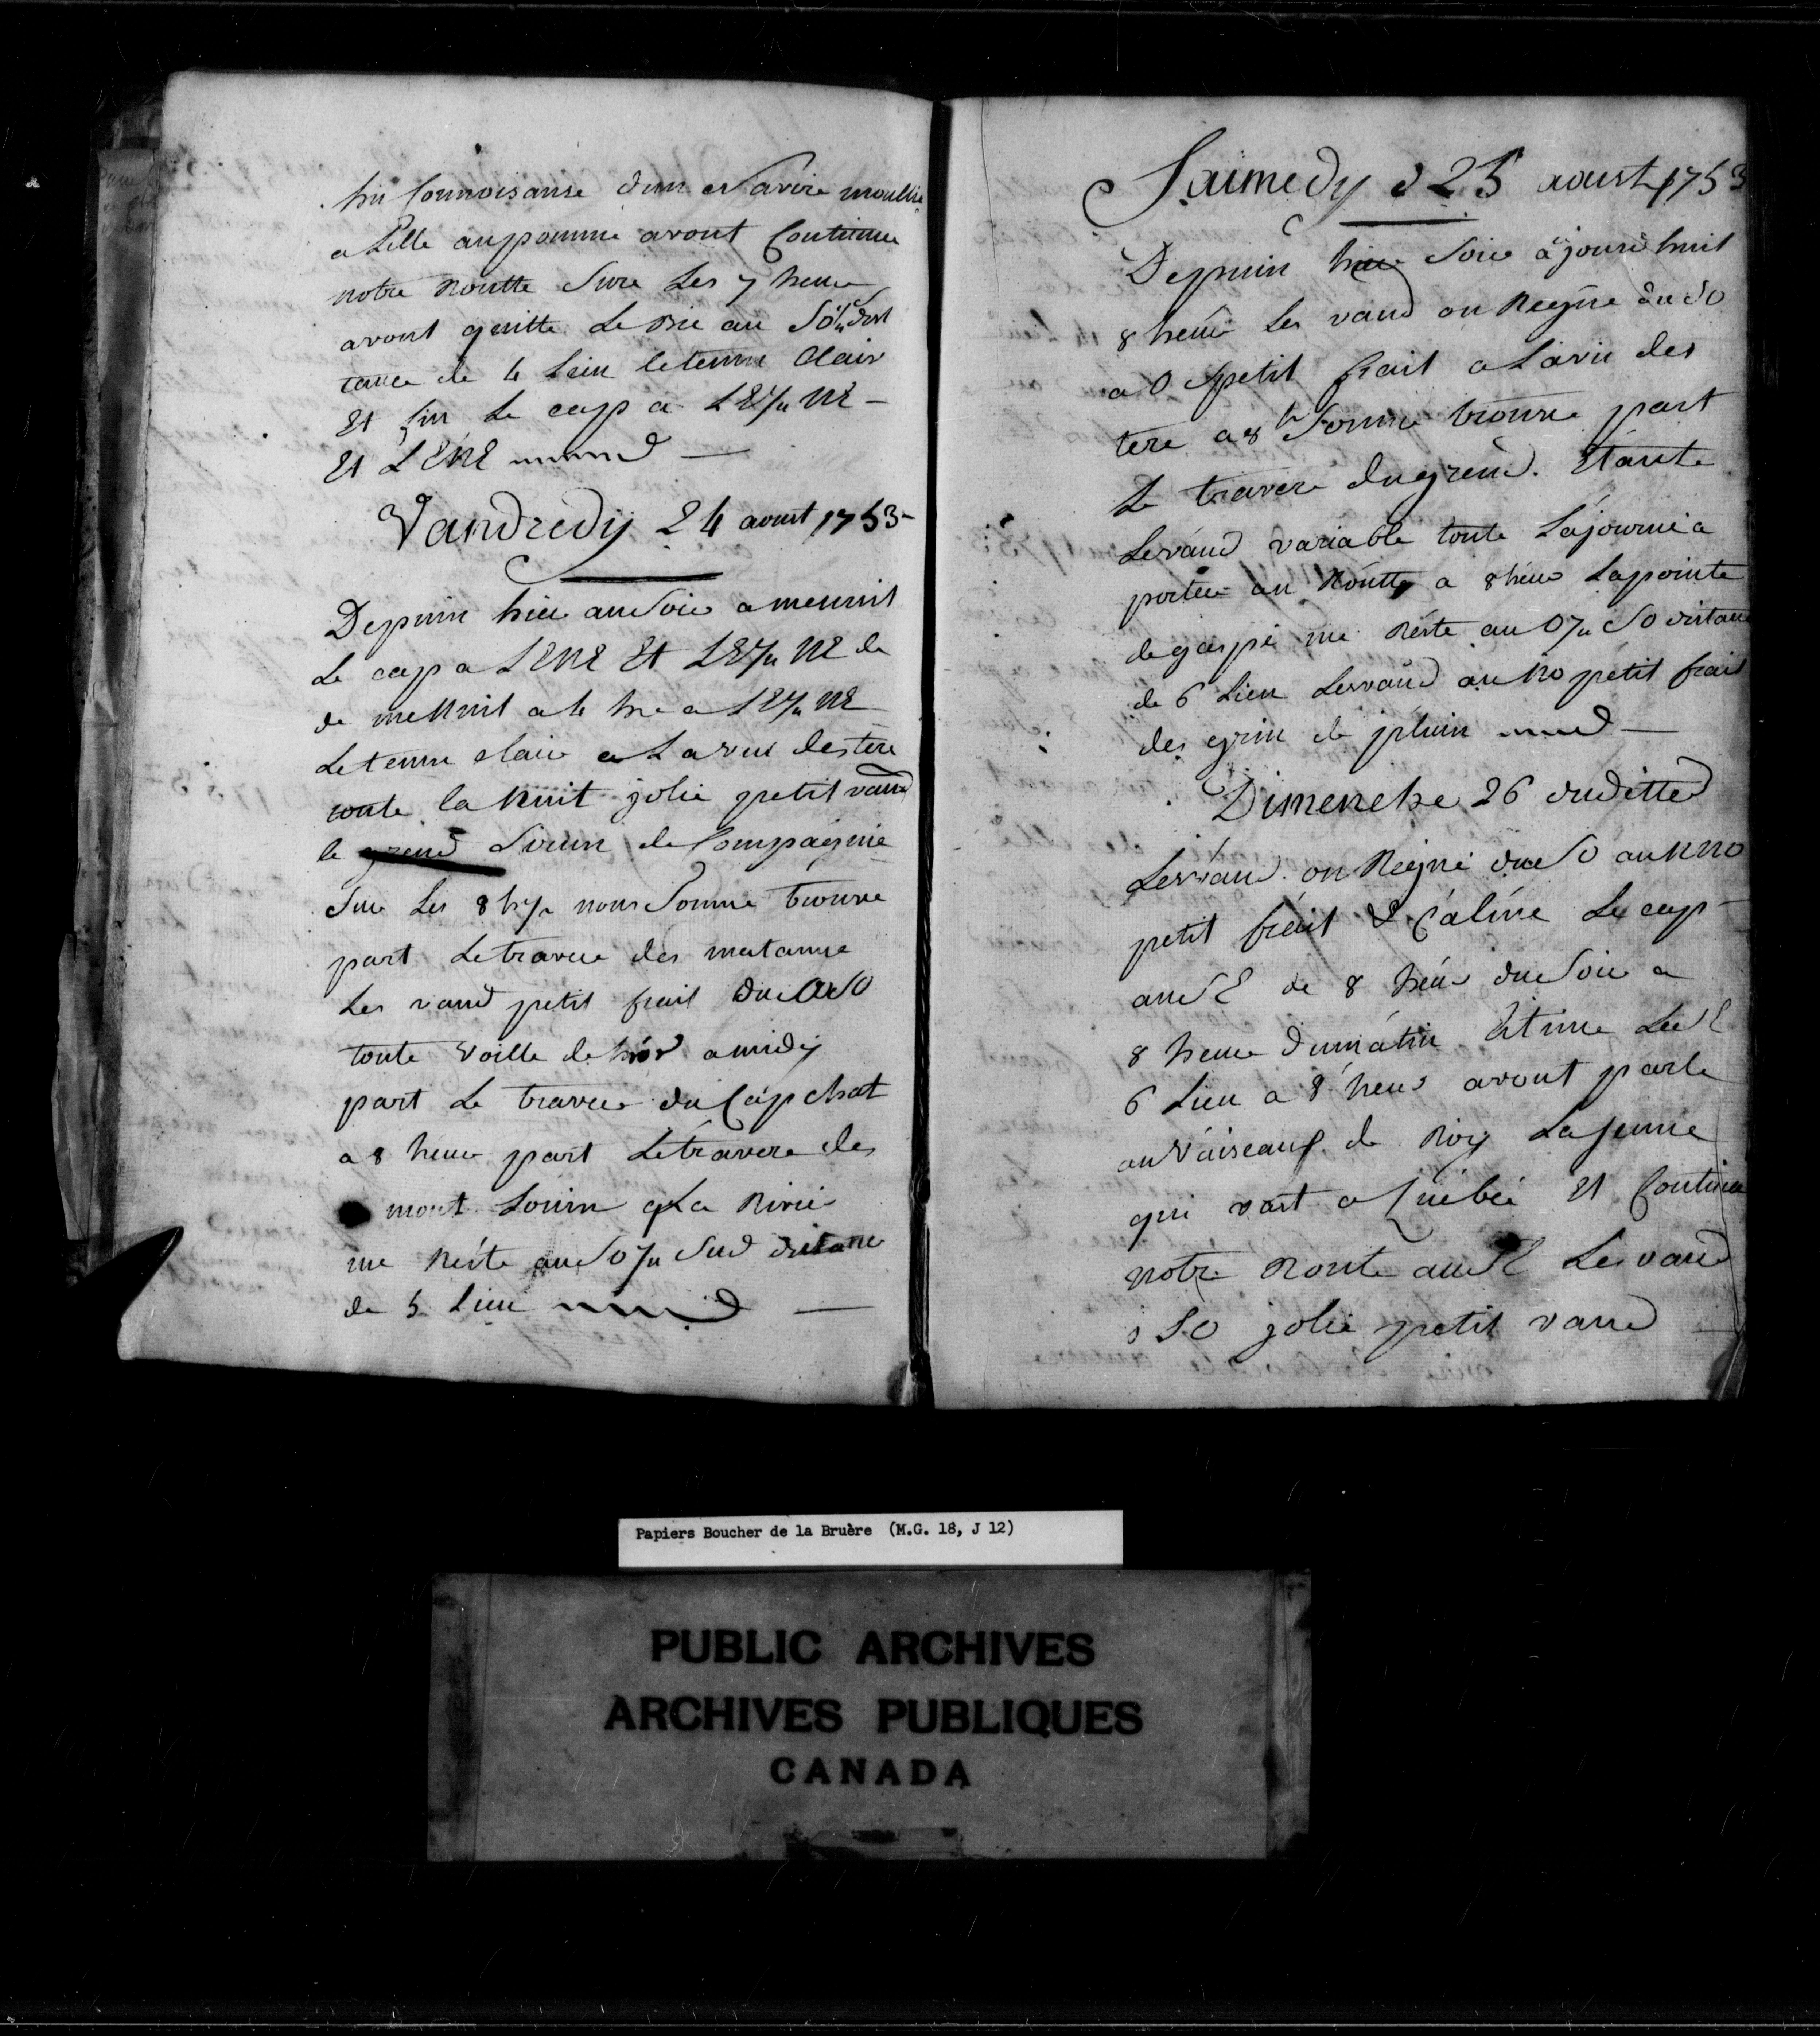 hu Connoisanse dun Navire moullie
a Lille aupomme avont Continue
notre Routte Sure Les 7 heure
avont quitte Le Bic au So dis
tance de 4 Lieu letemn Clair
Et fin Le cap a LE¼ NE —
Et LENE
Vandredy 24 aoust 1753 -
Depuin hier auSoir a menuit
Le cap a LENE Et LE¼ NE de
de meNuit a 4 hre a LE¼ NE
Letemn claire a La vus des tere
toute la Nuit jolie petit vand
le grend Sivun de Compagnie
Sur Les 8 h½ nous Somme trouve
part Letraver des matanne
Les vand petit frait du OSO
toute Voille dehors a midy
part Le traver du Cap chat
a 8 heure part Létravere des
mont Louin La Rivie
me Réste au So¼ Sud distance
de 5 Lieu
Saimedy d 25 aoust 1753
Depuin hier Soir a jourdhuit
8 heure Les vand on Regne du SO
a O petit frait a Lavu des
tere a 8h Somme trouve part
Le travere du grend. Etante
Levand variable toute Lajournié a
portee an Routte a 8 heur Lapointe
degaspé me Réste au O¼ SO distance
de 6 Lieu Levand au NO petit frait
des grin de pluin
Dimenche 26 duditted
Levand on Regné du SO au NNO
petit frait & Calme Le cap
au SE de 8 heur du Soir a
8 heure dumatin Etime Le SE
6 Lieu a 8 heur avont parle
au Vaiseaux de Roy Laseine
qui vart a Québec Et Continue
notre Route au SE Les vand
SO jolie petit vand
Papiers Boucher de la Bruère (M.G. 18, J 12)
PUBLIC ARCHIVES
ARCHIVES PUBLIQUES
CANADA